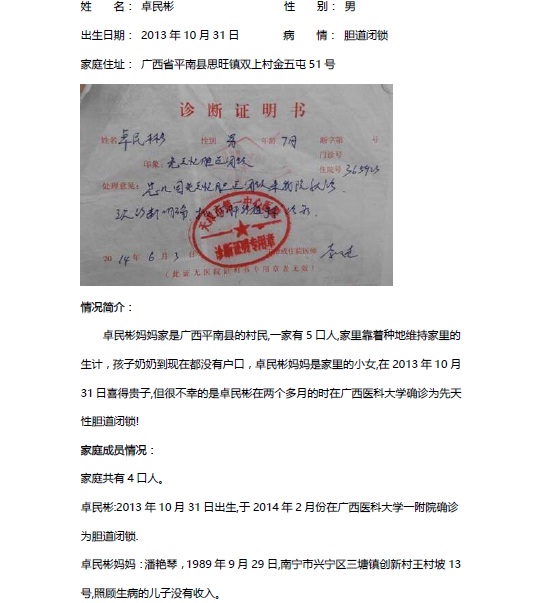 姓　　名： 卓民彬　　　　　　性　　别：男
出生日期： 2013 年 10 月 31 日　　　病　　情：胆道闭锁
家庭住址： 广西省平南县思旺镇双上村金五屯 51 号
诊断证明书
姓名 卓民彬 性别 男 年龄 7月 病字第 号
门诊号
印象： 先天性胆道闭锁 住院号
处理意见：患儿因先天性胆道闭锁来我院
2014 年 6 月 3 日 医师
(此证无医院证明书专用章者无效)
天津市第一中心医院
诊断证明专用章
情况简介：
卓民彬妈妈家是广西平南县的村民,一家有 5 口人,家里靠着种地维持家里的
生计，孩子奶奶到现在都没有户口，卓民彬妈妈是家里的小女,在 2013 年 10 月
31 日喜得贵子,但很不幸的是卓民彬在两个多月的时在广西医科大学确诊为先天
性胆道闭锁!
家庭成员情况：
家庭共有 4 口人。
卓民彬:2013 年 10 月 31 日出生,于 2014 年 2 月份在广西医科大学一附院确诊
为胆道闭锁.
卓民彬妈妈：潘艳琴，1989 年 9 月 29 日,南宁市兴宁区三塘镇创新村王村坡 13
号,照顾生病的儿子没有收入。